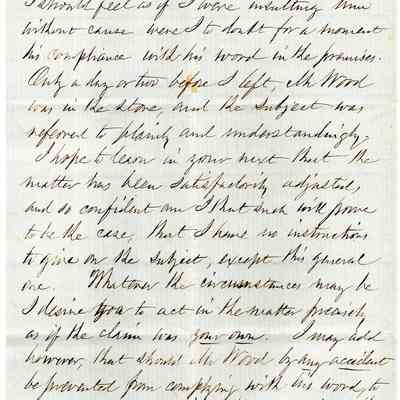 I should feel as if I were insulting him
without cause were I to doubt for a moment
his compliance with his word in the premises.
Only a day or two before I left, Mr Wood
was in the store, and the subject was
referred to plainly and understandingly.
I hope to learn in your next that the
matter has been satisfactorily adjusted,
and so confident am I that such will prove
to be the case, that I have no instructions
to give on the subject, except this general
one. Whatever the circumstances may be
I desire you to act in the matter precisely
as if the claim was your own. I may add
however, that should Mr Wood by any accident
be prevented from complying with his word, to